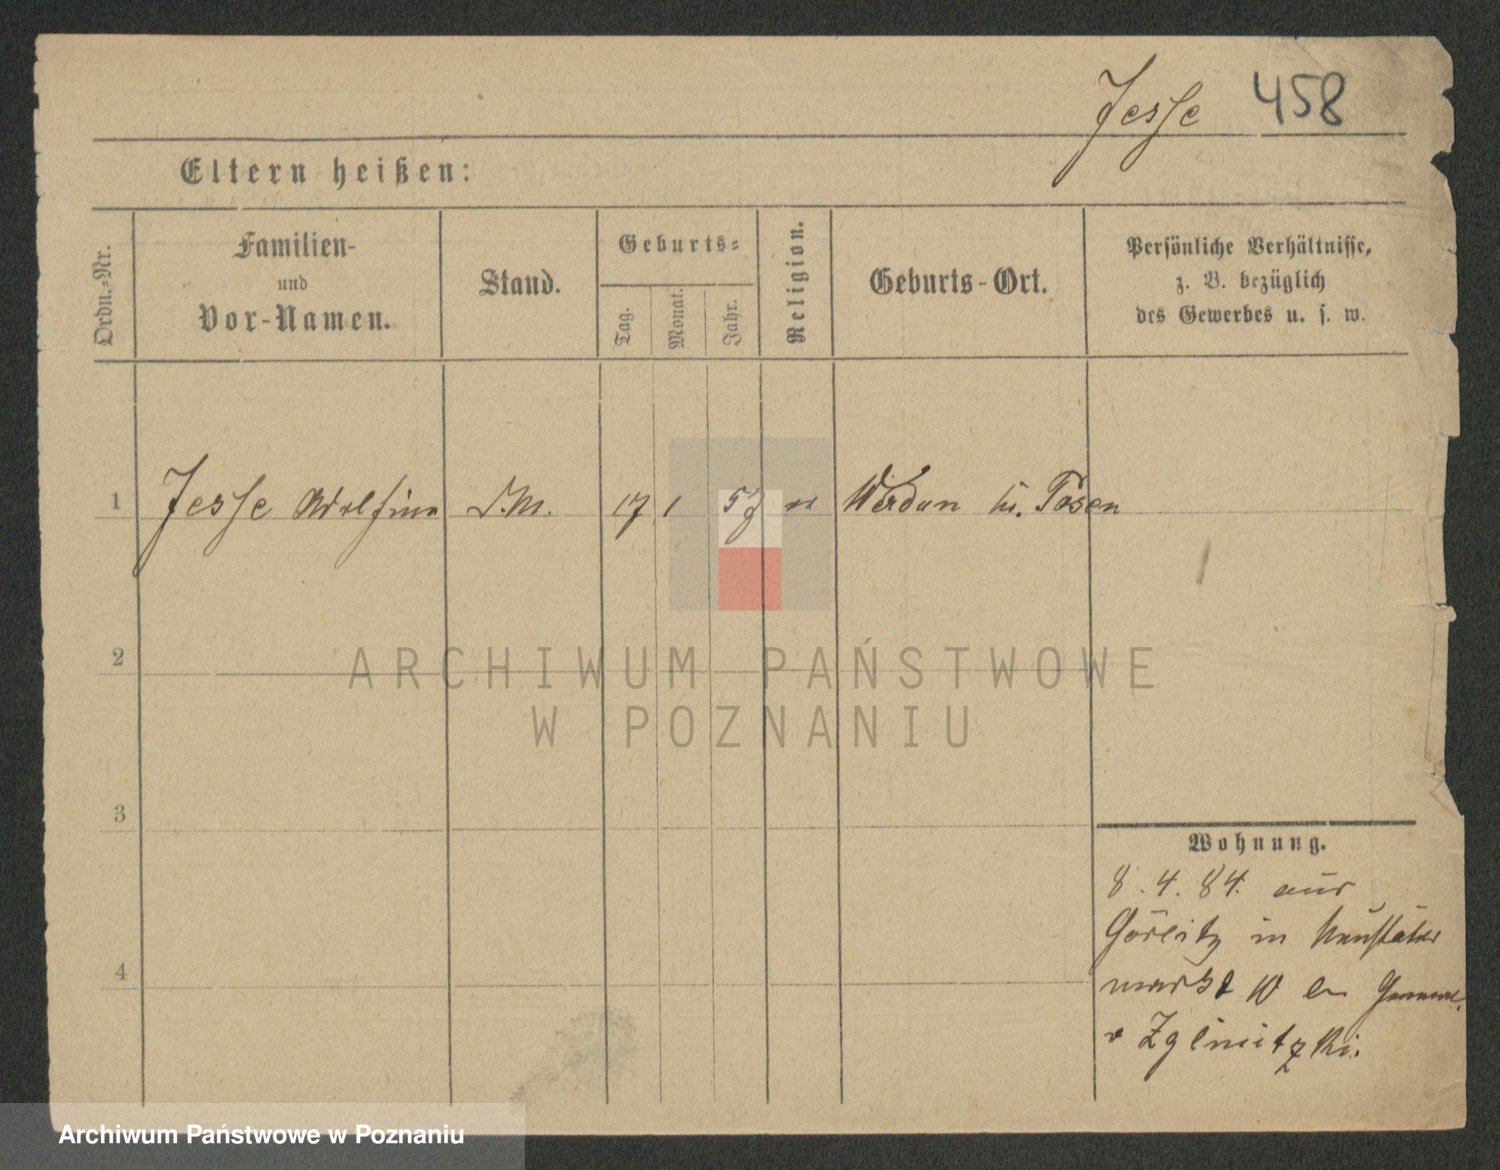 Jesse 458
Eltern heißen:
Ordn.-Nr.
Familien-
und
Vor-Namen.
Stand.
Geburts-
Tag.
Monat.
Jahr.
Religion.
Geburts-Ort.
Persönliche Verhältnisse,
z. B. bezüglich
des Gewerbes u. s. w.
1 Jesse Adolfine D.M. 17 1 57 Werdun Kr. Posen
2
3
4
ARCHIWUM PAŃSTWOWE
W POZNANIU
Wohnung.
8.4.84. aus
Görlitz in Neustädter
markt 10 bei General
v Zglinitzki.
Archiwum Państwowe w Poznaniu